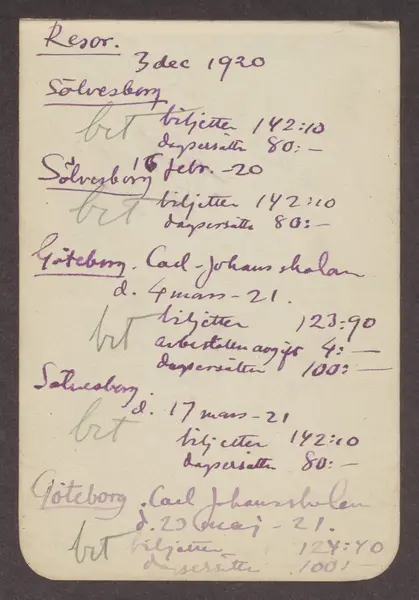 Resor.
3 dec 1920
Sölvesborg
bet biljetter 142:10
dagsersättn 80:—
Sölvesborg 16 febr. -20
bet biljetter 142:10
dagsersättn 80:—
Göteborg. Carl-Johansskolan
d. 4 mars - 21.
bet biljetter 123:90
4:—
dagsersättn 100:—
Sölvesborg
d. 17 mars - 21
bet biljetter 142:10
dagsersättn 80:—
Göteborg. Carl Johansskolan
d. 23 maj - 21.
bet biljetter 124:40
dagsersättn 100:—